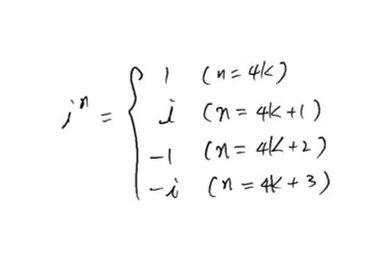 iⁿ = { 1 (n = 4k)
i (n = 4k + 1)
-1 (n = 4k + 2)
-i (n = 4k + 3)